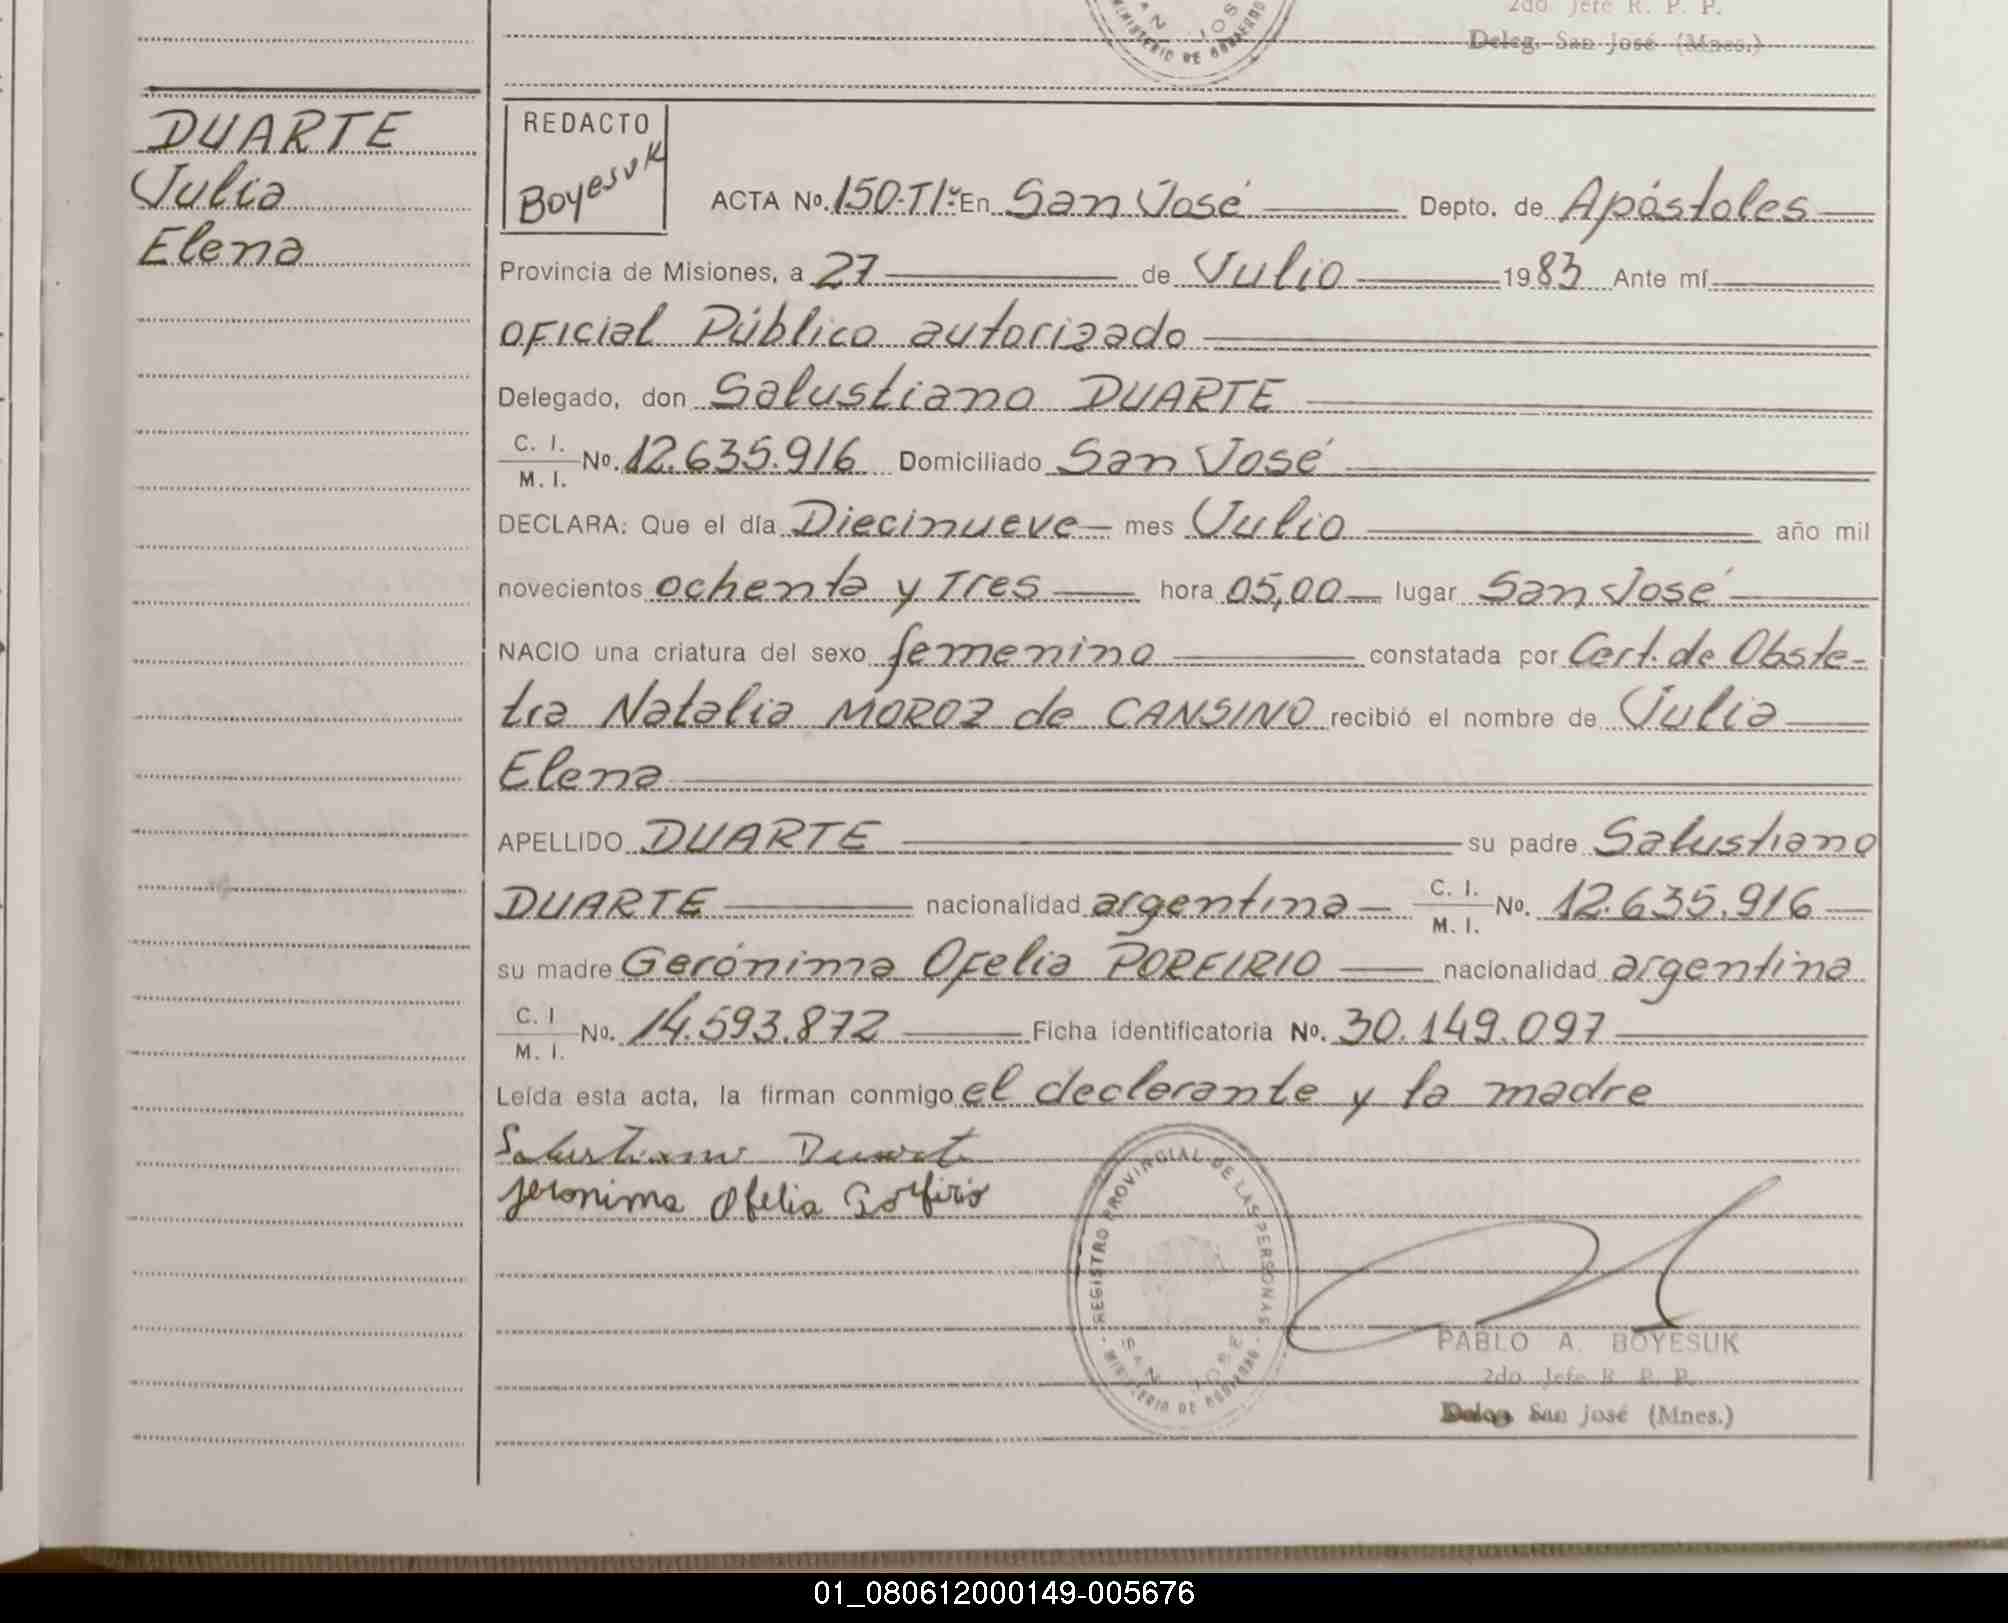 2do. Jefe R. P. P.
Deleg. San José (Mnes.)
SAN JOSE
MINISTERIO DE GOBIERNO
DUARTE
Julia
Elena
REDACTO
Boyesuk
ACTA No. 150-TIº En San José Depto. de Apóstoles
Provincia de Misiones, a 27 de Julio 1983 Ante mí
oficial Público autorizado
Delegado, don Salustiano DUARTE
C. I. M. I. No. 12.635.916 Domiciliado San José
DECLARA: Que el día Diecinueve mes Julio año mil
novecientos ochenta y Tres hora 05,00 lugar San José
NACIO una criatura del sexo femenino constatada por Cert. de Obste-
tra Natalia MOROZ de CANSINO recibió el nombre de Julia
Elena
APELLIDO DUARTE su padre Salustiano
DUARTE nacionalidad argentina C. I. M. I. No. 12.635.916
su madre Gerónima Ofelia PORFIRIO nacionalidad argentina
C. I M. I. No. 14.593.872 Ficha identificatoria No. 30.149.097
Leída esta acta, la firman conmigo el declarante y la madre
Salustiano Duarte
Jeronima Ofelia Porfirio
REGISTRO PROVINCIAL DE LAS PERSONAS
SAN JOSE
MINISTERIO DE GOBIERNO
PABLO A. BOYESUK
2do. Jefe R. P. P.
Deleg. San José (Mnes.)
01_080612000149-005676